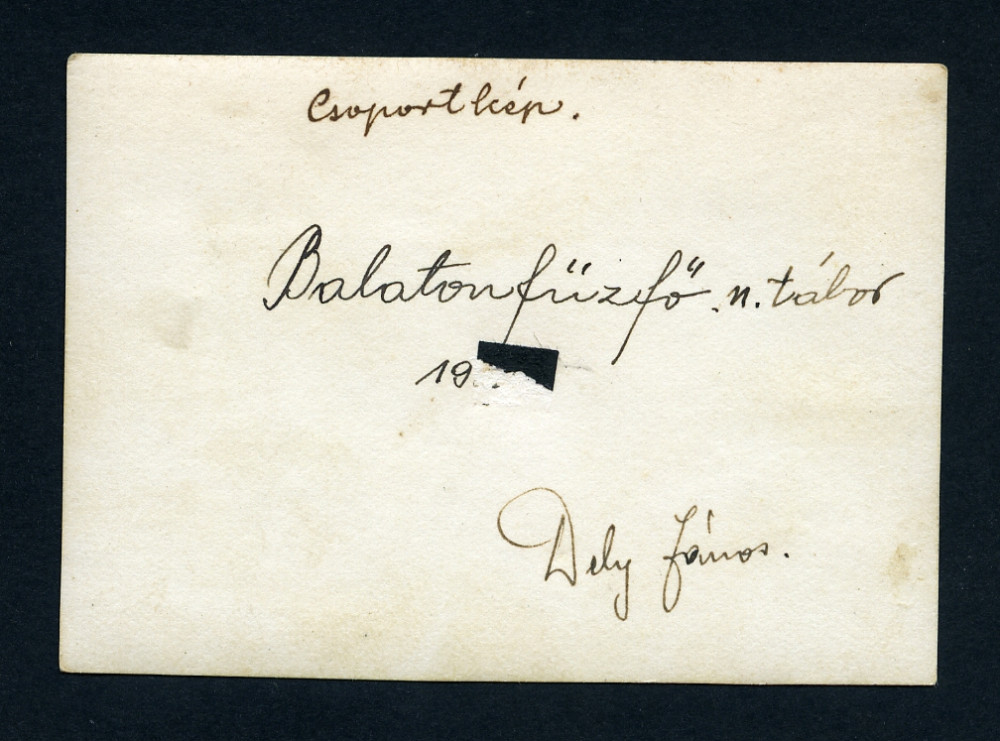 Csoportkép.
Balatonfűzfő n. tábor
19
Dely János.